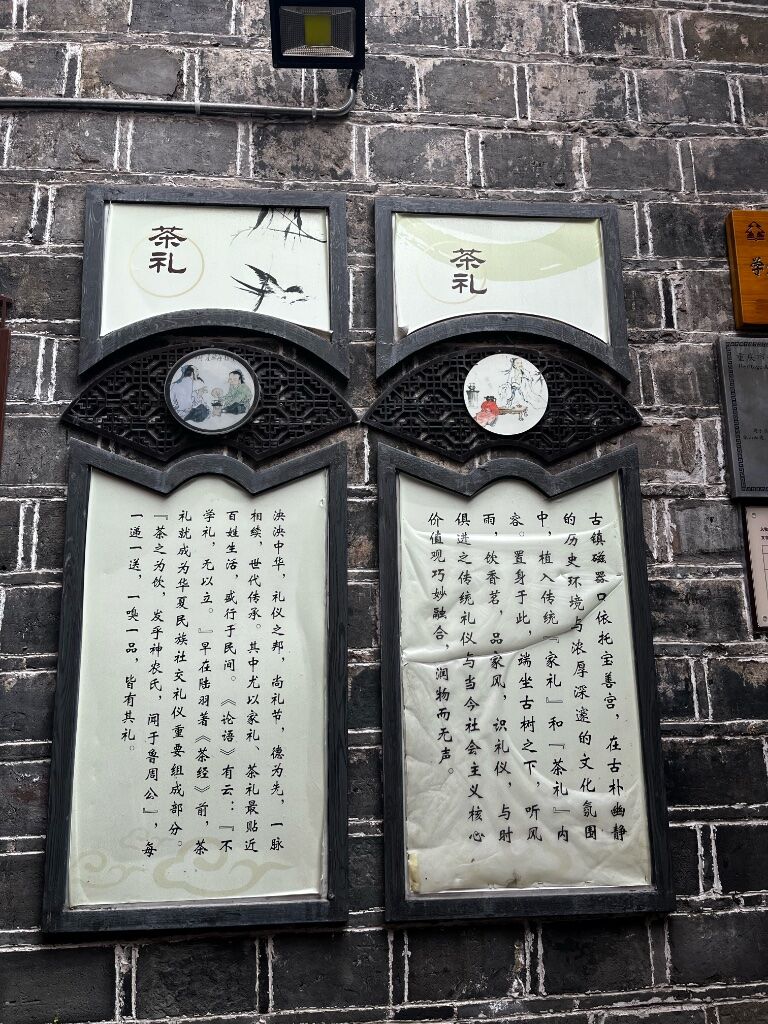 茶礼
泱泱中华，礼仪之邦，尚礼节，德为先，一脉
相续，世代传承。其中尤以家礼、茶礼最贴近
百姓生活，盛行于民间。《论语》有云：『不
学礼，无以立。』早在陆羽著《茶经》前，茶
礼就成为华夏民族社交礼仪重要组成部分。
『茶之为饮，发乎神农氏，闻于鲁周公』，每
一递一送，一嗅一品，皆有其礼。
茶礼
古镇磁器口依托宝善宫，在古朴幽静
的历史环境与浓厚深邃的文化氛围
中，植入传统『家礼』和『茶礼』内
容。置身于此，端坐古树之下，听风
雨，饮香茗，品家风，识礼仪，与时
俱进之传统礼仪与当今社会主义核心
价值观巧妙融合，润物而无声。
重庆
Heritage